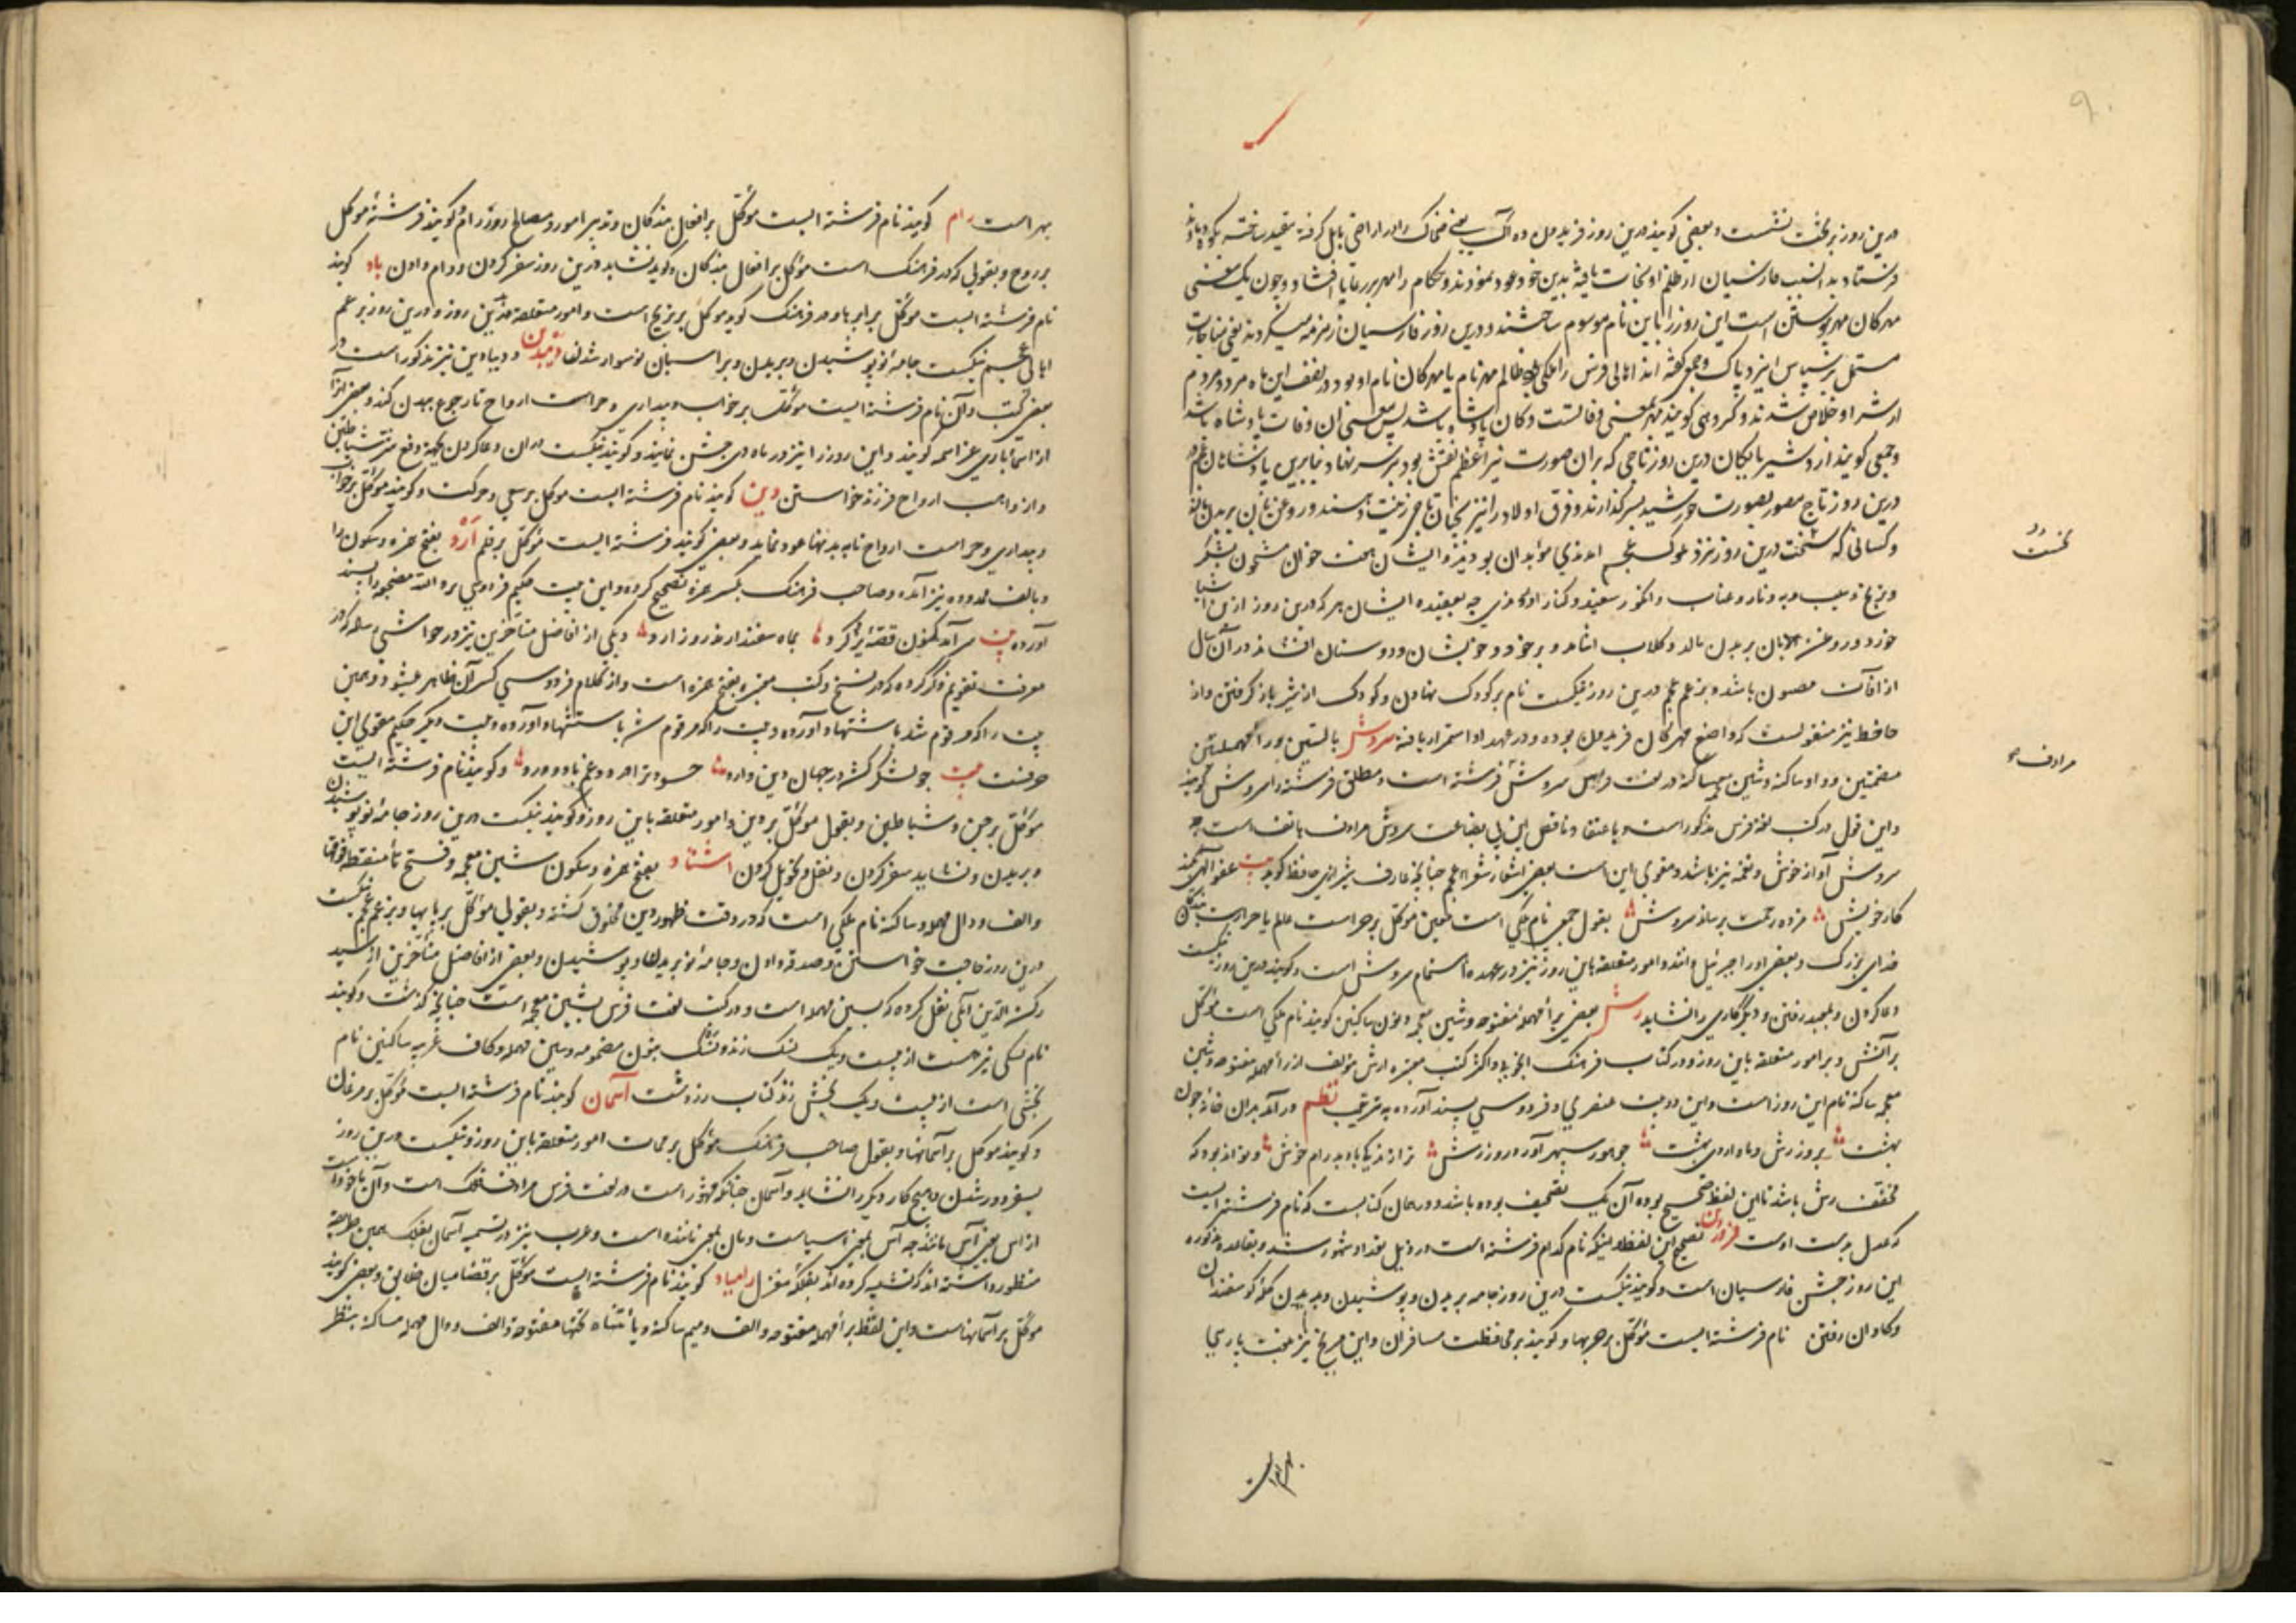 درین روز بر تخت نشست و بعضی گویند درین روز فریدون ده آک یعنی ضحاک را در اراضی بابل گرفته مقید ساخته بکوه دماوند
فرستاد بدانسبب فارسیان از ظلم او نجات یافته بدین خود عود نمودند و حکام را مهر بر رعایا افتاد و چون یک معنی
مهرکان مهر پیوستن است این روز را باین نام موسوم ساختند و درین روز فارسیان زمزمه میکردند یعنی مناجات
مشتمل بر سپاس ایزد پاک و جمعی گفته اند اهالی فرس را ملکی بود ظالم مهر نام یا مهرکان نام او بود در نصف این ماه مرد و مردم
از شر او خلاص شدند و گروهی گویند مهر بمعنی وفاتست و کان پادشاه باشد پس معنی آن وفات پادشاه باشد
و جمعی گویند اردشیر بابکان درین روز تاجی که بران صورت نیر اعظم نقش بود بر سر نهاد بنابرین پادشاهان عجم
درین روز تاج مصور بصورت خورشید بسر گذارند و فرق اولاد را نیز بچنان تاجی زینت دهند و روغن بان بر بدن مالند
و کسانی که نخست درین روز نزد ملوک عجم آمدندی موبدان بودند و ایشان هفت خوان مشحون بشکر
و ترنج و سیب و به و انار و عناب و انگور سفید و کنار آوردندی چه بعقیده ایشان هر که درین روز ازین اشیا
خورد و روغن بان بر بدن مالد و گلاب آشامد و بر خود و خویشان و دوستان افشاند در آن سال
از آفات مصون باشد و بزعم عجم درین روز نیکست نام بر کودک نهادن و کودک از شیر باز گرفتن و از
حافظ نیز منقولست که واضع مهرگان فریدون بوده و در عهد او استمرار یافته سروش بالسین و راء مهملتین
مضمتین و واو ساکنه و شین معجمه ساکنه در لغت فرس سروش فرشته است و مطلق فرشته را سروش گویند
و این قول در کتب لغة فرس مذکور است و باعتقاد ناقص این بی بضاعت سروش مرادف هاتف است چه
سروش آواز خوش و نغمه نیز باشد و مقوی این است بعضی اشعار شعراء عجم چنانچه عارف شیرازی حافظ گوید بیت عفو الهی بکند
کار خویش مژده رحمت برساند سروش بقول جمعی نام ملکی است معین موکل بر حراست عالم یا حراست بندگان
خدای بزرگ و بعضی او را جبرئیل دانند و امور متعلقه باین روز نیز در عهده اهتمام سروش است و گویند درین روز نیکست
دعا کردن و بمعبد رفتن و دیگر کاری را نشاید رشن بعضی براء مهمله مفتوحه و شین معجمه و نون ساکنین گویند نام ملکی است موکل
بر آتش و بر امور متعلقه باین روز و در کتاب فرهنگ انجو و اکثر کتب معتبره رش مؤلف از راء مهمله مفتوحه و شین
معجمه ساکنه نام این روز است و این دو بیت عنصری و فردوسی بسند آورده بترتیب نظم در آمد بدان خانه چون
بهشت بروز رش و ماه اردی بهشت چو هور سپهر آورد روز رش ترا زندگی باد و پدرام خوش و تواند بود که
مخفف رشن باشد تا این لفظ صحیح بوده آن یک تصحیف بوده باشد و در همان کتابست که نام فرشته ایست
که عدل بدست اوست فروردین تصحیح این لفظ و اینکه نام کدام فرشته است در ذیل تعداد شهور شد و بقاعده مذکوره
این روز جشن فارسیان است و گویند نیکست درین روز جامه بریدن و پوشیدن و بدیدن گله گوسفندان
و گاوان رفتن نام فرشته ایست موکل بر حربها و گویند بر محافظت مسافران و این مریخ نیز بلغت پارسی
نخست
مرادف
بهرام است
بهرام است رام گویند نام فرشته ایست موکل بر افعال بندگان و تدبیر امور و مصالح روز رام و گویند فرشته موکل
بر روح و بقولی که در فرهنگ است موکل بر افعال بندگان و گوید نشاید درین روز سفر کردن و وام دادن باد گویند
نام فرشته ایست موکل بر ابر و باد و در فرهنگ گوید موکل بر تزویج است و امور متعلقه بدین روز و درین روز بزعم
اهالی عجم نیکست جامه نو پوشیدن و بریدن و بر اسبان نو سوار شدن و دیبادین نیز مذکور است در
بعضی کتب و آن نام فرشته ایست موکل بر خواب و بیداری و حراست ارواح تا رجوع ببدن کنند و بعضی آنرا
از اسماء باری عز اسمه گویند و این روز را نیز در ماه دی جشن نمایند و گویند نیکست در آن دعا کردن بجهت دفع شر شیاطین
و از واهب ارواح فرزند خواستن دین گویند نام فرشته ایست موکل بر سعی و حرکت و گویند موکل بر خواب
و بیداری و حراست ارواح تا به بدنها عود نماید و بعضی گویند فرشته ایست موکل بر قلم ارد بفتح همزه و سکون را
و بالف ممدوده نیز آمده و صاحب فرهنگ بکسر همزه تصحیح کرده و این بیت حکیم فردوسی بروالله مضجعه را بسند
آورده بیت سر آمد کنون قصه یزدگرد بماه سفندارمذ روز ارد و یکی از افاضل متأخرین نیز در حواشی
معرفت تقویم ذکر کرده که در نسخ و کتب معتبره بفتح همزه است و از کلام فردوسی کسر آن ظاهر میشود و همین
بیت را که مرقوم شد باستشهاد آورده و بیت دیگر حکیم مقوی این
حرفست بیت
موکل بر جن و شیاطین و بقولی موکل بر دین و امور متعلقه باین روز و گویند نیکست درین روز جامه نو پوشیدن
و بریدن و نشاید سفر کردن و نقل و تحویل کردن اشتاد بفتح همزه و سکون شین معجمه و فتح تاء منقطه فوقها
والف و دال مهمله ساکنه نام ملکی است که در وقت ظهور دین مخلوق گشته و بقولی موکل بر بابها و بزعم عجم نیکست
درین روز حاجت خواستن و صدقه دادن و جامه نو بریدن و پوشیدن و بعضی از افاضل متأخرین از سید
رکن الدین آملی نقل کرده که بسین مهمله است و در کتب لغت فرس بشین معجمه است چنانچه گذشت و گویند
نام نسکی نیز هست از بیست و یک نسک زند و نسک بنون مضمومه و سین مهمله و کاف عربیه ساکنین نام
بخشی است از بیست و یک بخش زند کتاب زردشت آسمان گویند نام فرشته ایست موکل بر مرغان
و گویند موکل بر آسمانها و بقول صاحب فرهنگ موکل بر ممات امور متعلقه باین روز و نیکست درین روز
بسفر دور شدن و هیچ کار دیگر را نشاید و آسمان چنانکه مشهور است در لغت فرس مرادف فلک است و آن مأخوذست
از آس یعنی آس مانند چه آس بمعنی آسیاست و مان بمعنی مانند است و عرب نیز در تسمیه آسمان بفلک همین طریقه
منظور داشته اند که تشبیه کرده اند بفلکه مغزل زامیاد گویند نام فرشته ایست موکل بر قضا میان خلایق و بعضی گویند
موکل بر آسمانهاست و این لفظ براء مهمله مفتوحه والف و میم ساکنه و یاء مثناه تحتها مفتوحه والف و دال مهمله ساکنه بنظر